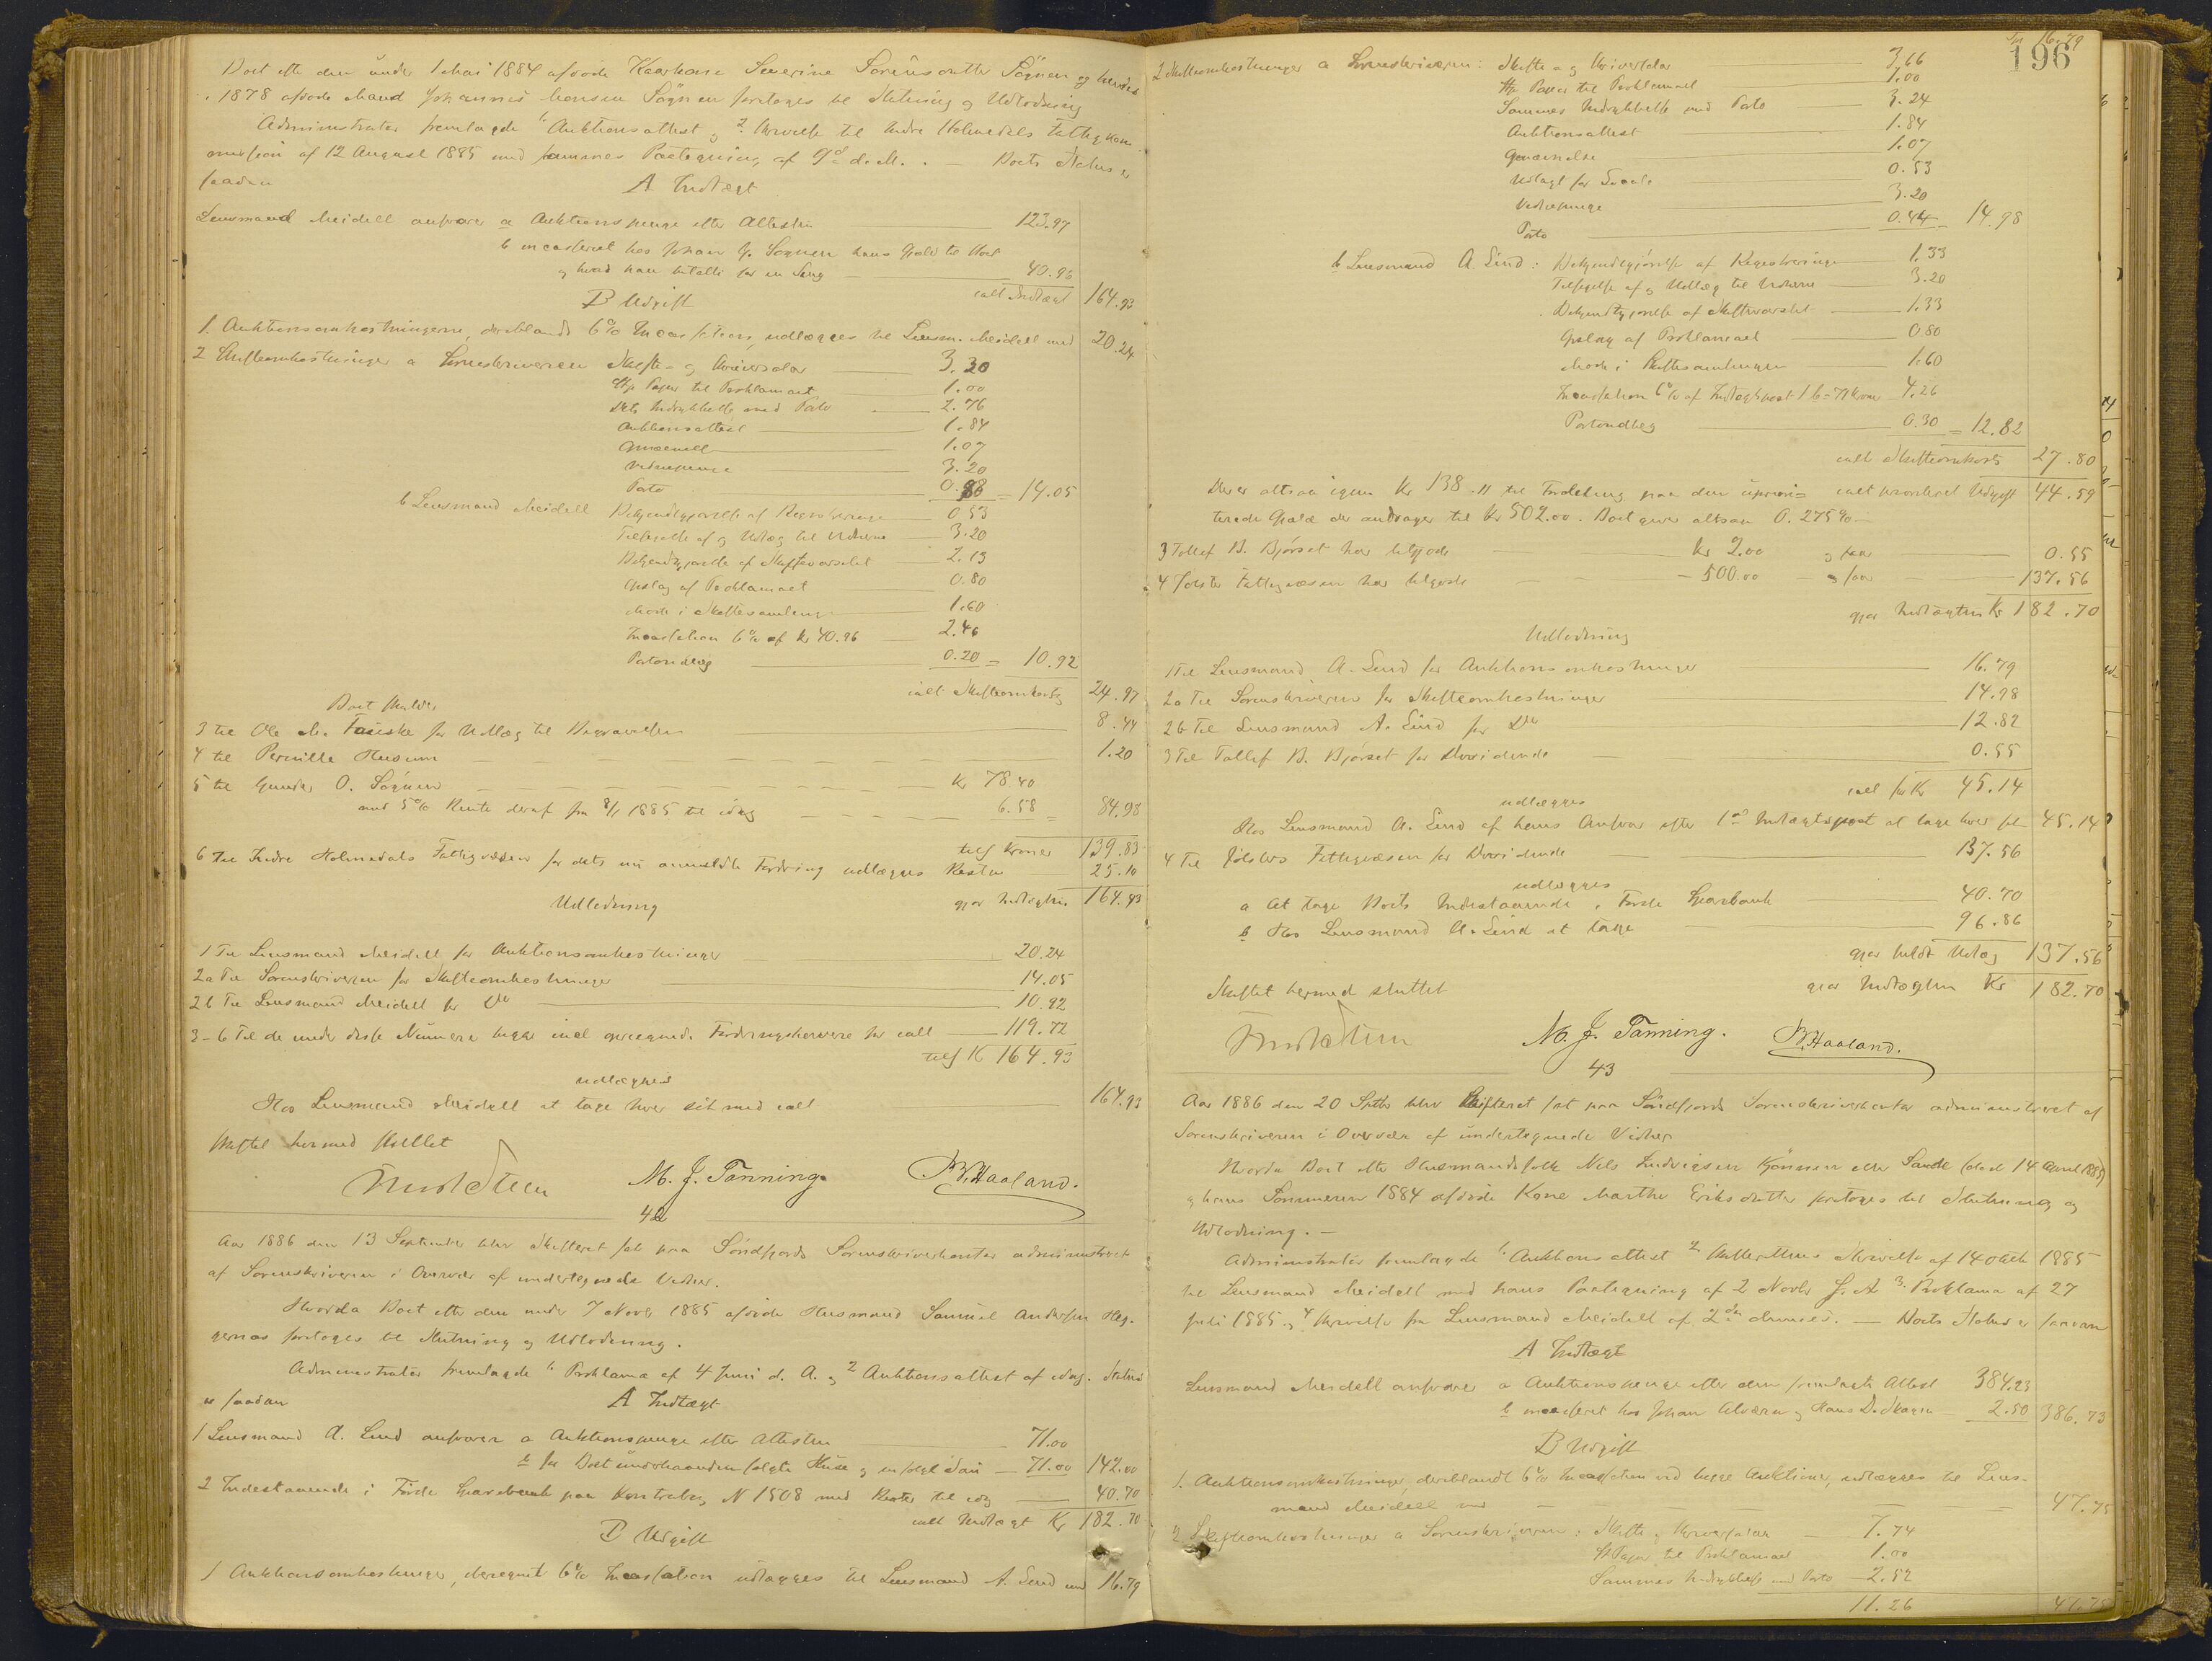 Boet efter den under 1 Mai 1884 afdøde Kaarkone Severine Sørensdatter Sögnen og hendes
i 1878 afdøde Mand Johannes Hansen Sögnen foretoges til Slutning og Udlodning
Administrator fremlagde 1. Auktionsattest og 2. Skrivelse til Indre Holmedals Fattigkom-
mission af 12 August 1885 med sammes Paategning af 9de d. M. . — Boets Status er
saadan
A Indtægt
Lensmand Meidell ansvarer a Auktionspenge efter Attesten 123.97
b incasseret hos Johan G. Sognen hans Gjæld til Boet
og hvad han betalte for en Seng 40.96
ialt Indtægt 164.93
B Udgift
1. Auktionsomkostningerne, deriblandt 6% Incassation, udlægges til Lensm. Meidell med 20.24
2 Skifteomkostninger a Sorenskriveren Skifte- og Skriversalær 3.20
Stp. Papir til Proklamaet 1.00
Dets Indrykkelse med Porto 2.76
Auktionsattest 1.84
1.07
Vidnepenge 3.20
Porto 0.98 = 14.05
b Lensmand Meidell Bekjendtgjørelse af Registreringen 0.53
Tilsigelse af og Udlæg til Vidnerne 3.20
Bekjendtgjørelse af Skiftevarslet 2.13
Opslag af Proklamaet 0.80
Møde i Skiftesamlingen 1.60
Incassation 6% af Kr 40.96 2.46
Portoudlæg 0.20 = 10.92
ialt Skifteomkostg 24.97
Boet skylder
3 til Ole M. Fauske for Udlæg til Begravelsen 8.44
4 til Pernille Husum 1.20
5 til Gunder O. Sögnen Kr 78.40
med 5% Rente deraf fra 8/1 1885 til idag 6.58 = 84.98
tils Kroner 139.83
6 Til Indre Holmedals Fattigvæsen for dets nu anmeldte Fordring udlægges Resten 25.10
gjør Indtægten 164.93
Udlodning
1 Til Lensmand Meidell for Auktionsomkostninger 20.24
2a Til Sorenskriveren for Skifteomkostninger 14.05
2b Til Lensmand Meidell for Do 10.92
3-6 Til de under disse Numere hver især opregnede Fordringshavere for ialt 119.72
tils K 164.93
udlægges
Hos Lensmand Meidell at tage hver sit med ialt 164.93
Skiftet hermed sluttet
M. J. Tanning. B. Haaland.
42
Aar 1886 den 13 September blev Skifteret sat paa Söndfjords Sorenskriverkontor administreret
af Sorenskriveren i Overvær af undertegnede Vidner.
Hvorda Boet efter den under 7 Novbr 1885 afdøde Husmand Samuel Andersen Heg-
gernæs foretoges til Slutning og Udlodning.
Administrator fremlagde 1. Proklama af 4 Juni d. A. og 2 Auktionsattest af idag. Status
er saadan
A Indtægt
1 Lensmand A. Lind ansvarer a Auktionspenge efter Attesten 71.00
b for Boet underhaanden solgte Huse og en solgt Sau 71.00 142.00
2 Indestaaende i Förde Sparebank paa Kontrabog N 1508 med Renter til idag 40.70
ialt Indtægt Kr 182.70
B Udgift
1 Auktionsomkostninger, deregnet 6% Incassation udlægges til Lensmand A. Lind med 16.79
Tr. 16.79
196
2 Skifteomkostninger a Sorenskriveren: Skifte- og Skriversalær 3.66
Stp. Papir til Proklamaet 1.00
Sammes Indrykkelse med Porto 3.24
Auktionsattest 1.84
1.07
Udlagt for 0.53
Vidnepenge 3.20
Porto 0.44 = 14.98
b Lensmand A. Lind: Bekjendtgjørelse af Registreringen 1.33
Tilsigelse af og Udlæg til Vidnerne 3.20
Bekjendtgjørelse af Skiftevarslet 1.33
Opslag af Proklamaet 0.80
Møde i Skiftesamlingen 1.60
Incassation 6% af Indtægtspost 1 b = 71 Kroner 4.26
Portoudlæg 0.30 = 12.82
ialt Skifteomkostn 27.80
Der er altsaa igjen Kr 138.11 til Fordeling paa den upriori- ialt prioriteret Udgift 44.59
terede Gjæld der andrager til Kr 502.00. Boet giver altsaa 0.275 %
3 Tollef B. Bjørset har tilgode Kr 2.00 og faar 0.55
4 Jølster Fattigvæsen har tilgode - 500.00 og faar 137.56
gjør Indtægten Kr 182.70
Udlodning
1 Til Lensmand A. Lind for Auktionsomkostninger 16.79
2a Til Sorenskriveren for Skifteomkostninger 14.98
2b Til Lensmand A. Lind for Do 12.82
3 Til Tollef B. Bjørset for Dividende 0.55
ialt for Kr 45.14
udlægges
Hos Lensmand A. Lind af hans Ansvar efter 1ste Indtægtspost at tage hver sit 45.14
4 Til Jølsters Fattigvæsen for Dividende 137.56
udlægges
a At tage Boets Indestaaende i Förde Sparebank 40.70
b Hos Lensmand A. Lind at tage 96.86
gjør fuldt Udlæg 137.56
gjør Indtægten Kr 182.70
Skiftet hermed sluttet
M. J. Tanning. B. Haaland.
43
Aar 1886 den 20 Septbr blev Skifteret sat paa Söndfjords Sorenskriverkontor administreret af
Sorenskriveren i Overvær af undertegnede Vidner
Hvorda Boet efter Husmandsfolk Nils Ludvigsen Kjönsnen eller Sande (død 14 April 1885)
og hans Sommeren 1884 afdøde Kone Marthe Eriksdatter foretoges til Slutning og
Udlodning. —
Administrator fremlagde 1. Auktionsattest 2. Skifterettens Skrivelse af 14 Oktb 1885
til Lensmand Meidell med hans Paategning af 2 Novbr f. A 3. Proklama af 27
Juli 1885 og 4 Skrivelse fra Lensmand Meidell af 2den ds. — Boets Status er saavan
A Indtægt
Lensmand Meidell ansvarer a Auktionspenge efter den fremlagte Attest 384.23
b incasseret hos Johan Alværn og Hans D. 2.50 386.73
B Udgift
1. Auktionsomkostninger, deriblandt 6% Incassation ved begge Auktioner, udlægges til Lens-
mand Meidell med 47.75
2 Skifteomkostninger a Sorenskriveren: Skifte og Skriversalær 7.74
St Papir til Proklamaet 1.00
Sammes Indrykkelse med Porto 2.52
11.26 47.75